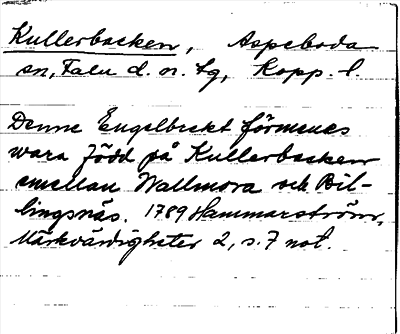 Kullerbacken, Aspeboda
sn, Falu d. o. tg, Kopp. l.
Denne Engelbrekt förmenes
wara född på Kullerbacken
emellan Wallmora och Bil-
lingsnäs. 1789 Hammarström,
Märkvärdigheter 2, s. 7 not.